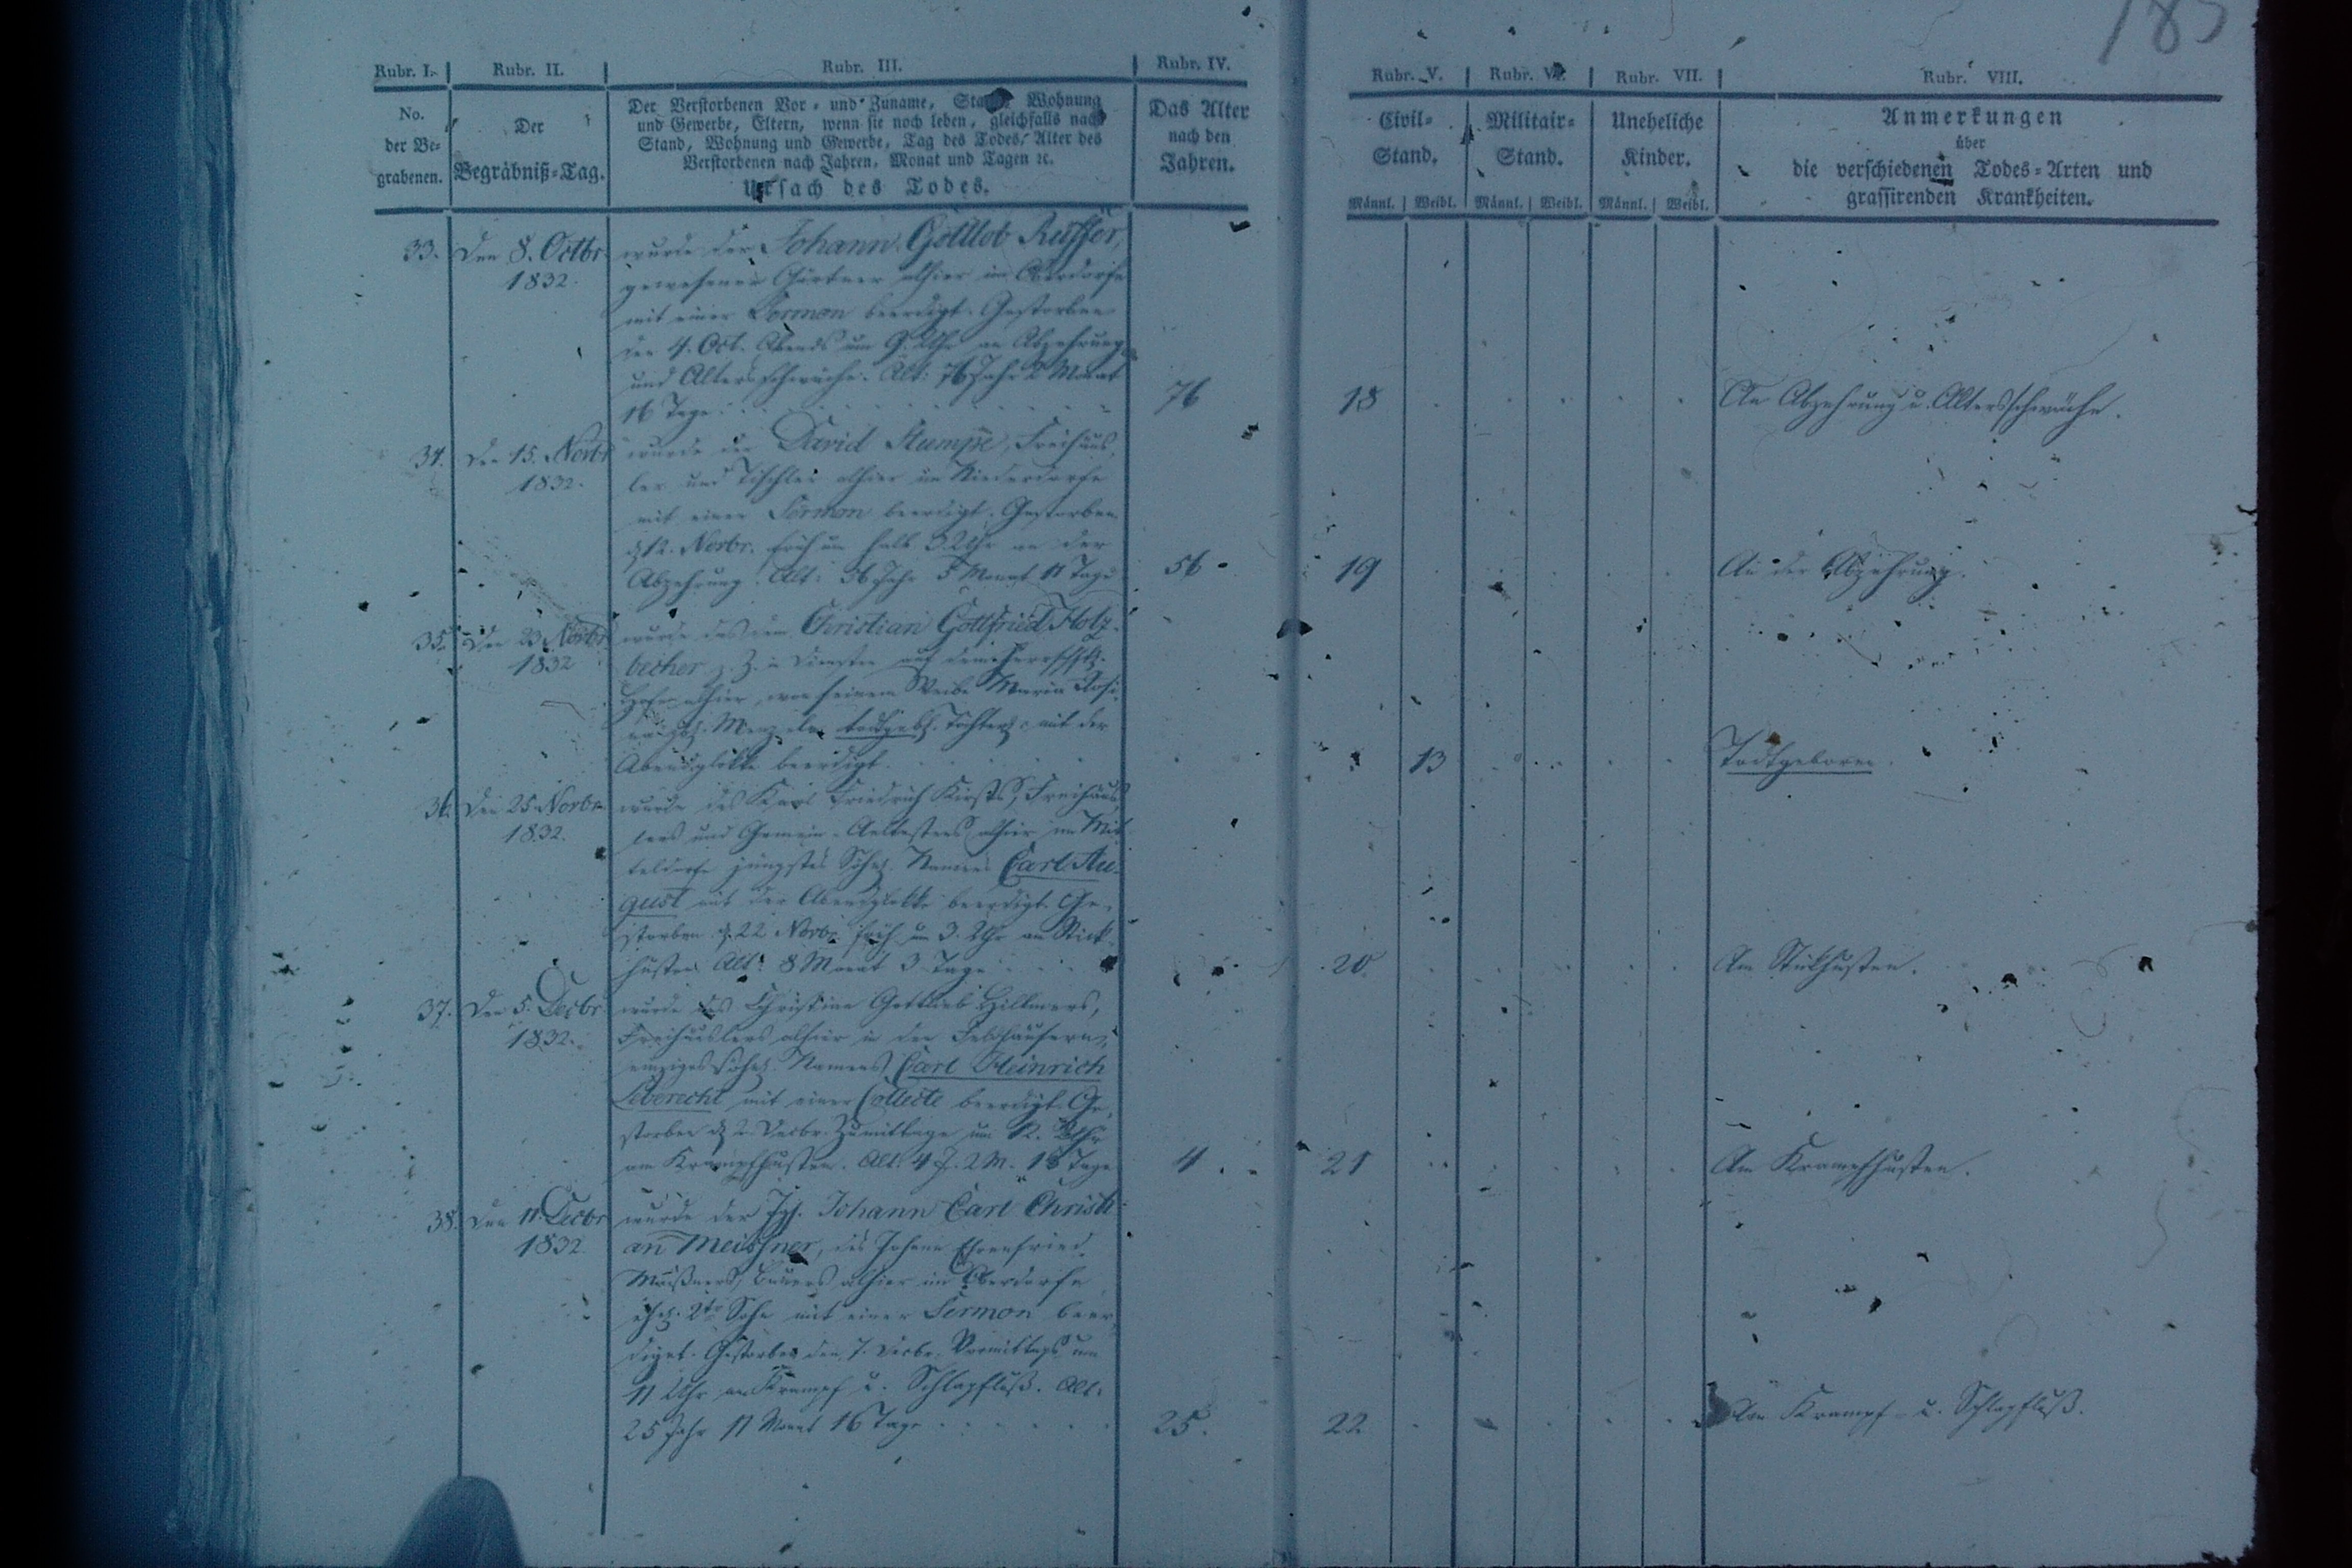 185
Rubr. I. Rubr. II. Rubr. III. Rubr. IV. Rubr. V. Rubr. VI. Rubr. VII. Rubr. VIII.
No. der Be- grabenen.
Der Begräbniß-Tag.
Der Verstorbenen Vor- und Zuname, Stand, Wohnung
und Gewerbe, Eltern, wenn sie noch leben, gleichfalls nach
Stand, Wohnung und Gewerbe, Tag des Todes, Alter des
Verstorbenen nach Jahren, Monat und Tagen ꝛc.
Ursach des Todes.
Das Alter
nach den
Jahren.
Civil-
Stand.
Militair-
Stand.
Uneheliche
Kinder.
Anmerkungen
über
die verschiedenen Todes-Arten und
grassirenden Krankheiten.
Männl. Weibl. Männl. Weibl. Männl. Weibl.
33. Den 8. Octbr. wurde der Johann Gottlob Ruffer,
1832. gewesener Gärtner alhier im Oberdorfe
mit einer Sermon beerdigt. Gestorben
den 4. Oct. Abends um 9. Uhr an Abzehrung
und Altersschwäche. Alt: 76 Jahr 2 Monat
16 Tage. 76 18 An Abzehrung u. Altersschwäche.
34. Den 15. Novbr wurde der David Stumpe, Freihäus-
1832. ler und Tischler alhier im Niederdorfe
mit einer Sermon beerdigt. Gestorben
12. Novbr. früh um halb 3. Uhr an der
Abzehrung. Alt: 56 Jahr 5 Monat 11 Tage 56 19 An der Abzehrung.
35. Den 23 Novbr wurde des dem Christian Gottfried Holz-
1832 becher z. Z. in Diensten auf dem
Hofe alhier, von seinem Weibe Maria Rosi-
todtgeb. mit der
Abendglokke beerdigt. 13 Todtgeboren.
36. Den 25 Novbr. wurde des Karl Friedrich Freihäus-
1832. lers und Gemein-Aeltestens alhier im Mit-
teldorfe jüngstes Namens Carl Au-
gust mit der Abendglokke beerdigt. Ge-
storben 22 Novbr früh um 3. Uhr am Stick-
husten. Alt: 8 Monat 3 Tage 20 Am Stickhusten.
37. Den 5. Decbr wurde des Christian Gottlieb Hillmers,
1832. Freihäuslers alhier in den Feldhäusern,
einziges Namens Carl Heinrich
Leberecht mit einer Collecte beerdigt. Ge-
storben 2. Decbr. Zumittage um 12. Uhr
am Krampfhusten. Alt: 4 J. 2 M. 18 Tage 4 21 Am Krampfhusten.
38. Den 11. Decbr wurde der Jgs. Johann Carl Christi-
1832. an Meissner, des Johann Ehrenfried
Meißners, Bauers alhier im Oberdorfe
2te Sohn mit einer Sermon beer-
diget. Gestorben den 7. Decbr. Vormittags um
11 Uhr an Krampf u. Schlagfluß. Alt:
25 Jahr 11 Monat 16 Tage 25. 22. Am Krampf- u. Schlagfluß.